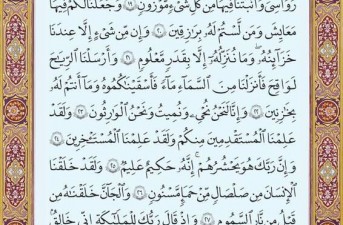 رَوَٰسِيَ وَأَنۢبَتْنَا فِيهَا مِن كُلِّ شَىْءٍ مَّوْزُونٍ ١٩ وَجَعَلْنَا لَكُمْ فِيهَا
مَعَٰيِشَ وَمَن لَّسْتُمْ لَهُۥ بِرَٰزِقِينَ ٢٠ وَإِن مِّن شَىْءٍ إِلَّا عِندَنَا
خَزَآئِنُهُۥ وَمَا نُنَزِّلُهُۥٓ إِلَّا بِقَدَرٍ مَّعْلُومٍ ٢١ وَأَرْسَلْنَا ٱلرِّيَٰحَ
لَوَٰقِحَ فَأَنزَلْنَا مِنَ ٱلسَّمَآءِ مَآءً فَأَسْقَيْنَٰكُمُوهُ وَمَآ أَنتُمْ لَهُۥ
بِخَٰزِنِينَ ٢٢ وَإِنَّا لَنَحْنُ نُحْىِۦ وَنُمِيتُ وَنَحْنُ ٱلْوَٰرِثُونَ ٢٣ وَلَقَدْ
عَلِمْنَا ٱلْمُسْتَقْدِمِينَ مِنكُمْ وَلَقَدْ عَلِمْنَا ٱلْمُسْتَـْٔخِرِينَ ٢٤
وَإِنَّ رَبَّكَ هُوَ يَحْشُرُهُمْ إِنَّهُۥ حَكِيمٌ عَلِيمٌ ٢٥ وَلَقَدْ خَلَقْنَا
ٱلْإِنسَٰنَ مِن صَلْصَٰلٍ مِّنْ حَمَإٍ مَّسْنُونٍ ٢٦ وَٱلْجَآنَّ خَلَقْنَٰهُ مِن
قَبْلُ مِن نَّارِ ٱلسَّمُومِ ٢٧ وَإِذْ قَالَ رَبُّكَ لِلْمَلَٰٓئِكَةِ إِنِّى خَٰلِقٌۢ